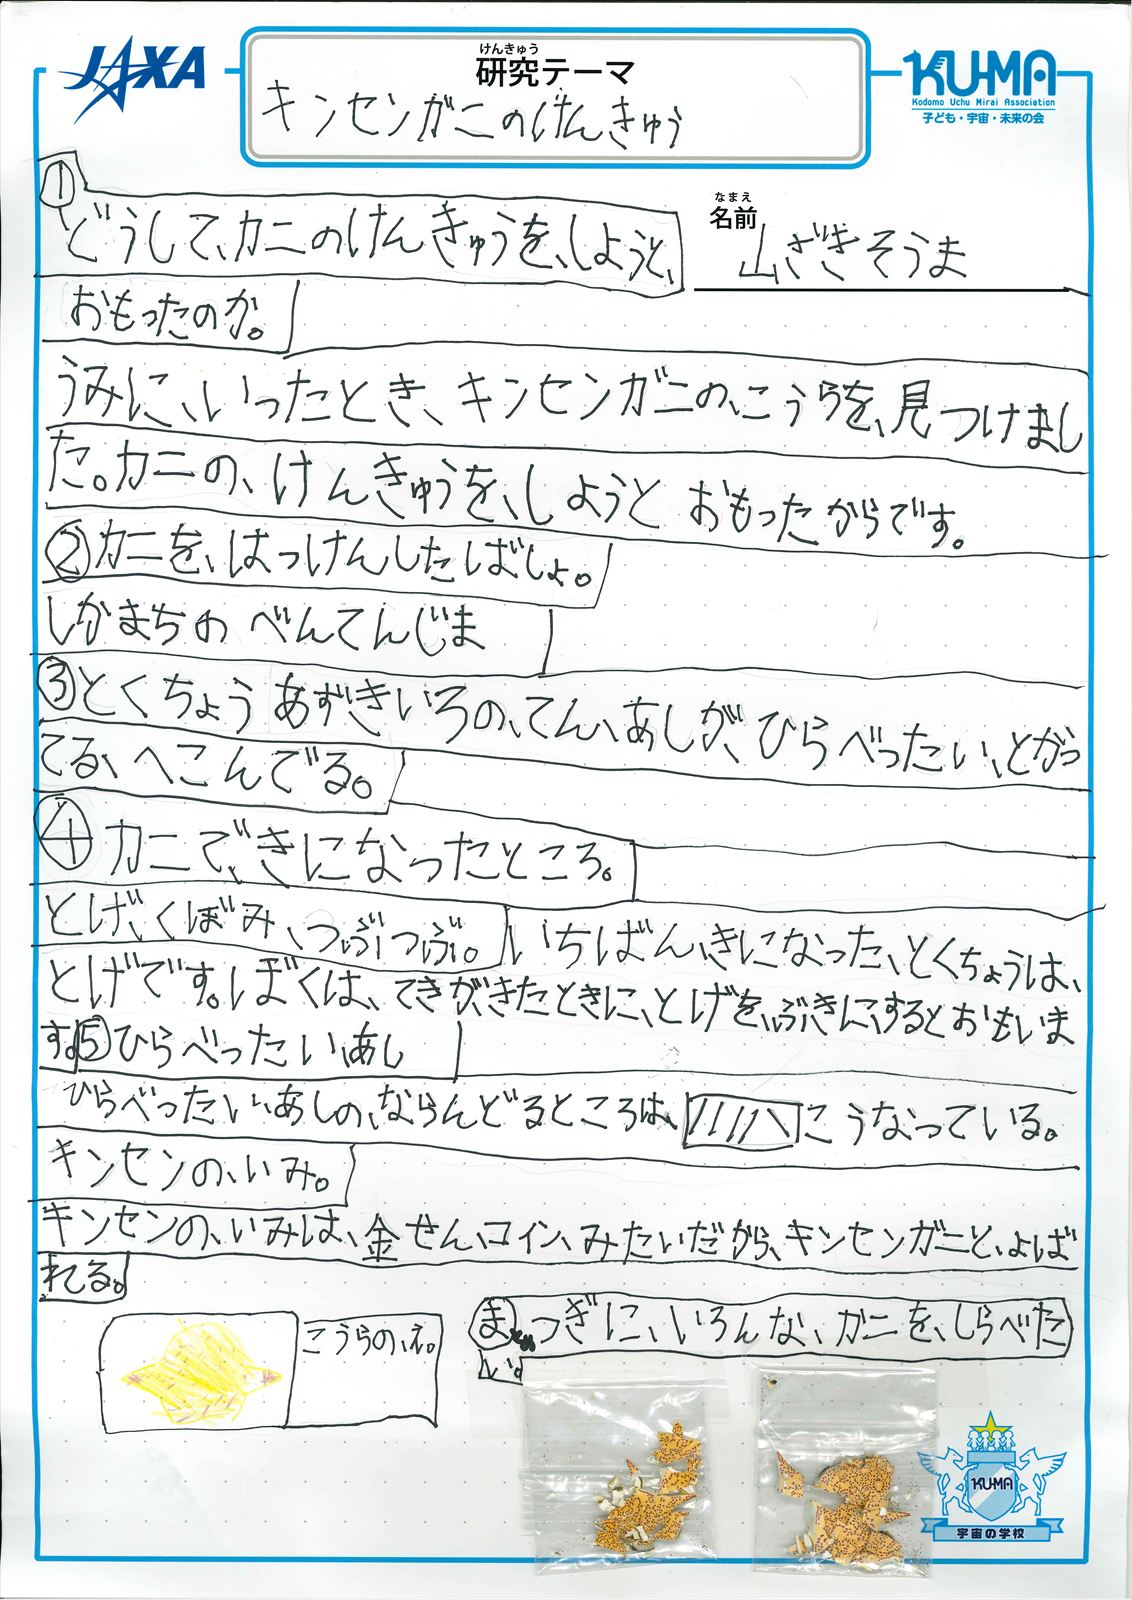 JAXA
けんきゅう
研究テーマ
キンセンガニのけんきゅう
KU-MA
Kodomo Uchu Mirai Association
子ども・宇宙・未来の会
①
どうして、カニのけんきゅうを、しようと、
なまえ
名前
山ざきそうま
おもったのか。
うみに、いったとき、キンセンガニの、こうらを、見つけまし
た。カニの、けんきゅうを、しようと おもったからです。
②カニを、はっけんしたばしょ。
しかまちの べんてんじま
③とくちょう あずきいろの、てん、あしが、ひらべったい、とがっ
てる、へこんでる。
④カニで、きになったところ。
とげ、くぼみ、つぶつぶ。いちばん、きになった、とくちょうは、
とげです。ぼくは、てきが、きたときに、とげを、ぶきに、するとおもいま
す。⑤ひらべったい、あし
ひらべったい、あしの、ならんどるところは、こうなっている。
キンセンの、いみ。
キンセンの、いみは、金せん、コイン、みたいだから、キンセンガニと、よば
れる。
こうらの、え。
ま つぎに、いろんな、カニを、しらべた
い。
KU-MA
宇宙の学校